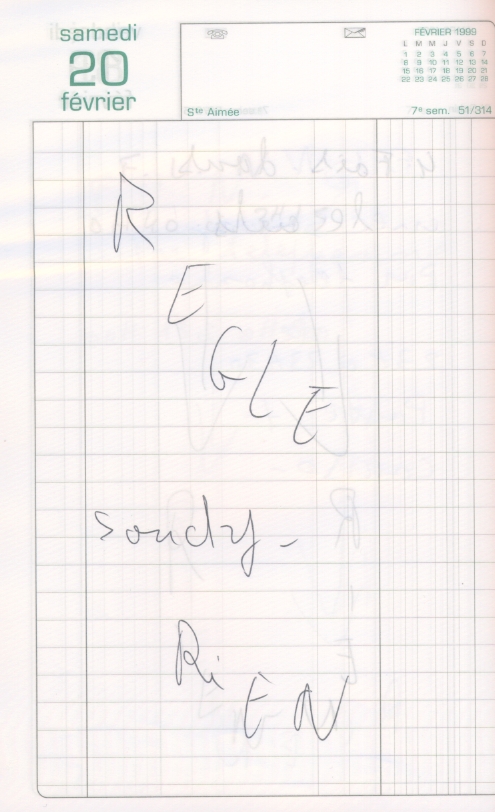 samedi
20
février
FÉVRIER 1999
L M M J V S D
1 2 3 4 5 6 7
8 9 10 11 12 13 14
15 16 17 18 19 20 21
22 23 24 25 26 27 28
Ste Aimée
7e sem. 51/314
R
E
GLE
RiEN